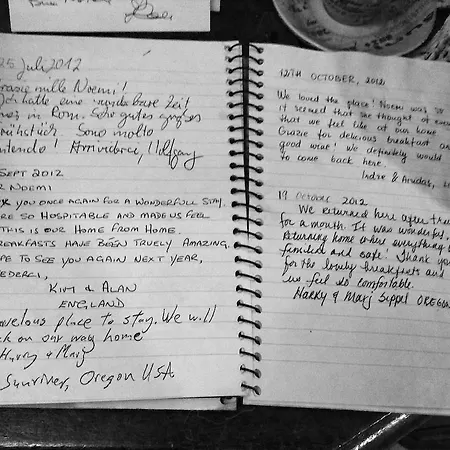 25 Juli 2012
Grazie mille Noemi!
Ich hatte eine wunderbare Zeit
in Rom. Sehr gutes großes
Frühstück. Sono molto
contendo! Arrivederci, Wolfgang
SEPT 2012
NOEMI
YOU ONCE AGAIN FOR A WONDERFULL STAY.
SO HOSPITABLE AND MADE US FEEL
THIS IS OUR HOME FROM HOME.
BREAKFASTS HAVE BEEN TRUELY AMAZING.
TO SEE YOU AGAIN NEXT YEAR,
KIM & ALAN
ENGLAND
place to stay. We will
on our way home
Harry & Marj
Sunriver, Oregon USA
12TH OCTOBER, 2012
We loved the place! Noemi was so
it seemed that she thought of
that we feel like at our home
Grazie for delicious breakfast and
good wine! We definitely would
to come back here.
Indre & Arvydas,
19 October 2012
We returned here after
for a month. It was wonderful,
Returning home where everything
familiar and safe! Thank you
for the lovely breakfasts and
we feel so comfortable.
Harry & Marj Sippel OREGON